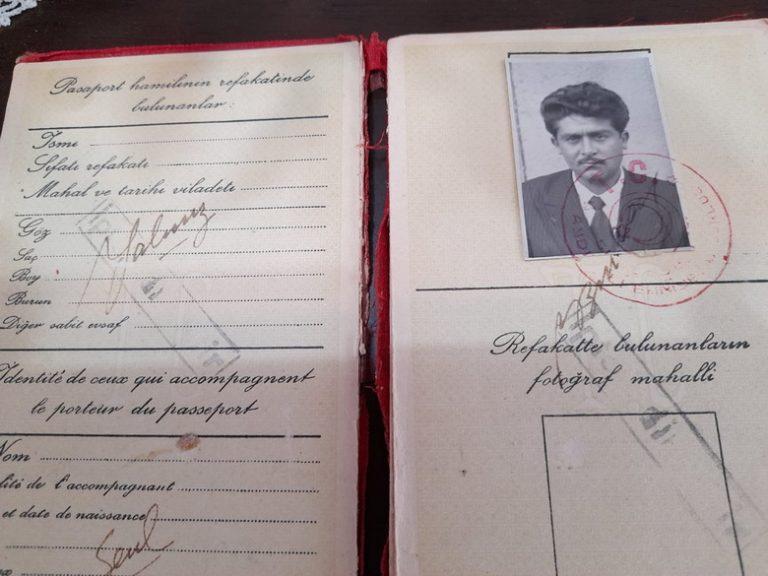 Pasaport hamilinin refakatinde
bulunanlar:
İsmi
Sıfatı refakatı
Mahal ve tarihi viladeti
Göz
Saç
Boy
Burun
Diğer sabit evsaf
Yalınız
Identité de ceux qui accompagnent
le porteur du passeport
Nom
lité de l'accompagnant
et date de naissance
Seul
Refakatte bulunanların
fotoğraf mahalli